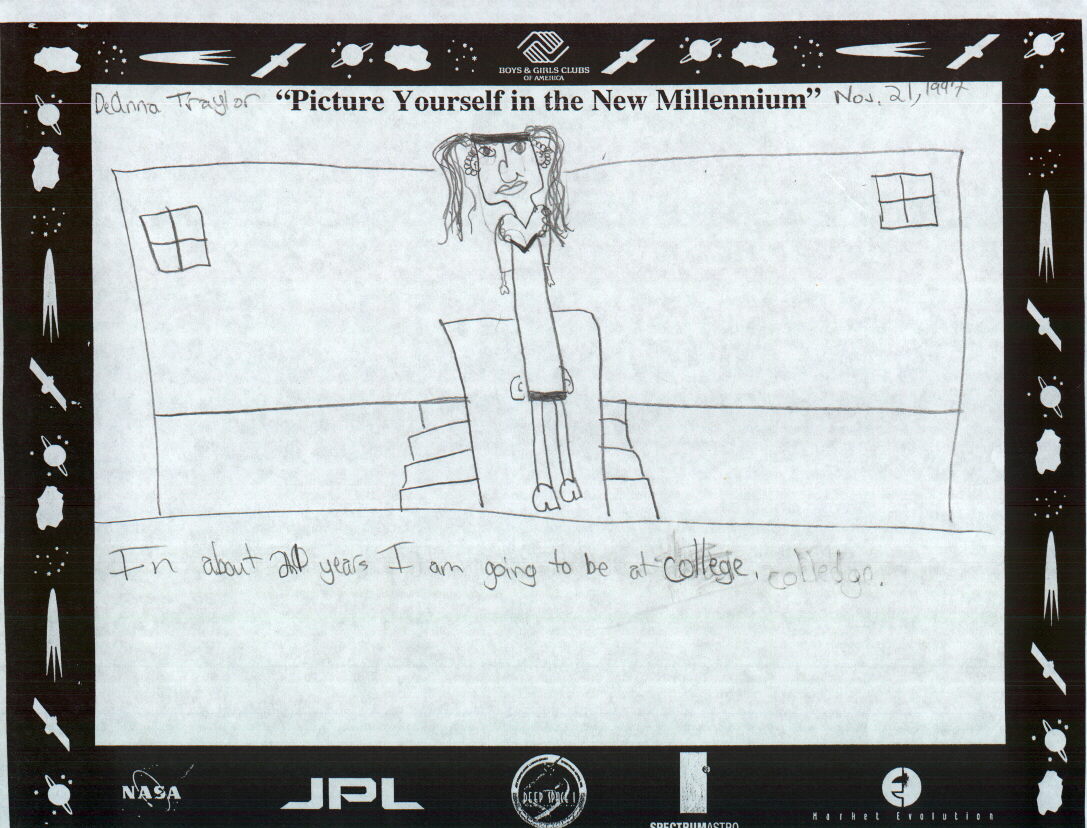 BOYS & GIRLS CLUBS
OF AMERICA
DeAnna Traylor "Picture Yourself in the New Millennium" Nov. 21, 1997
In about years I am going to be at college.
NASA JPL DEEP SPACE 1 SPECTRUMASTRO Market Evolution